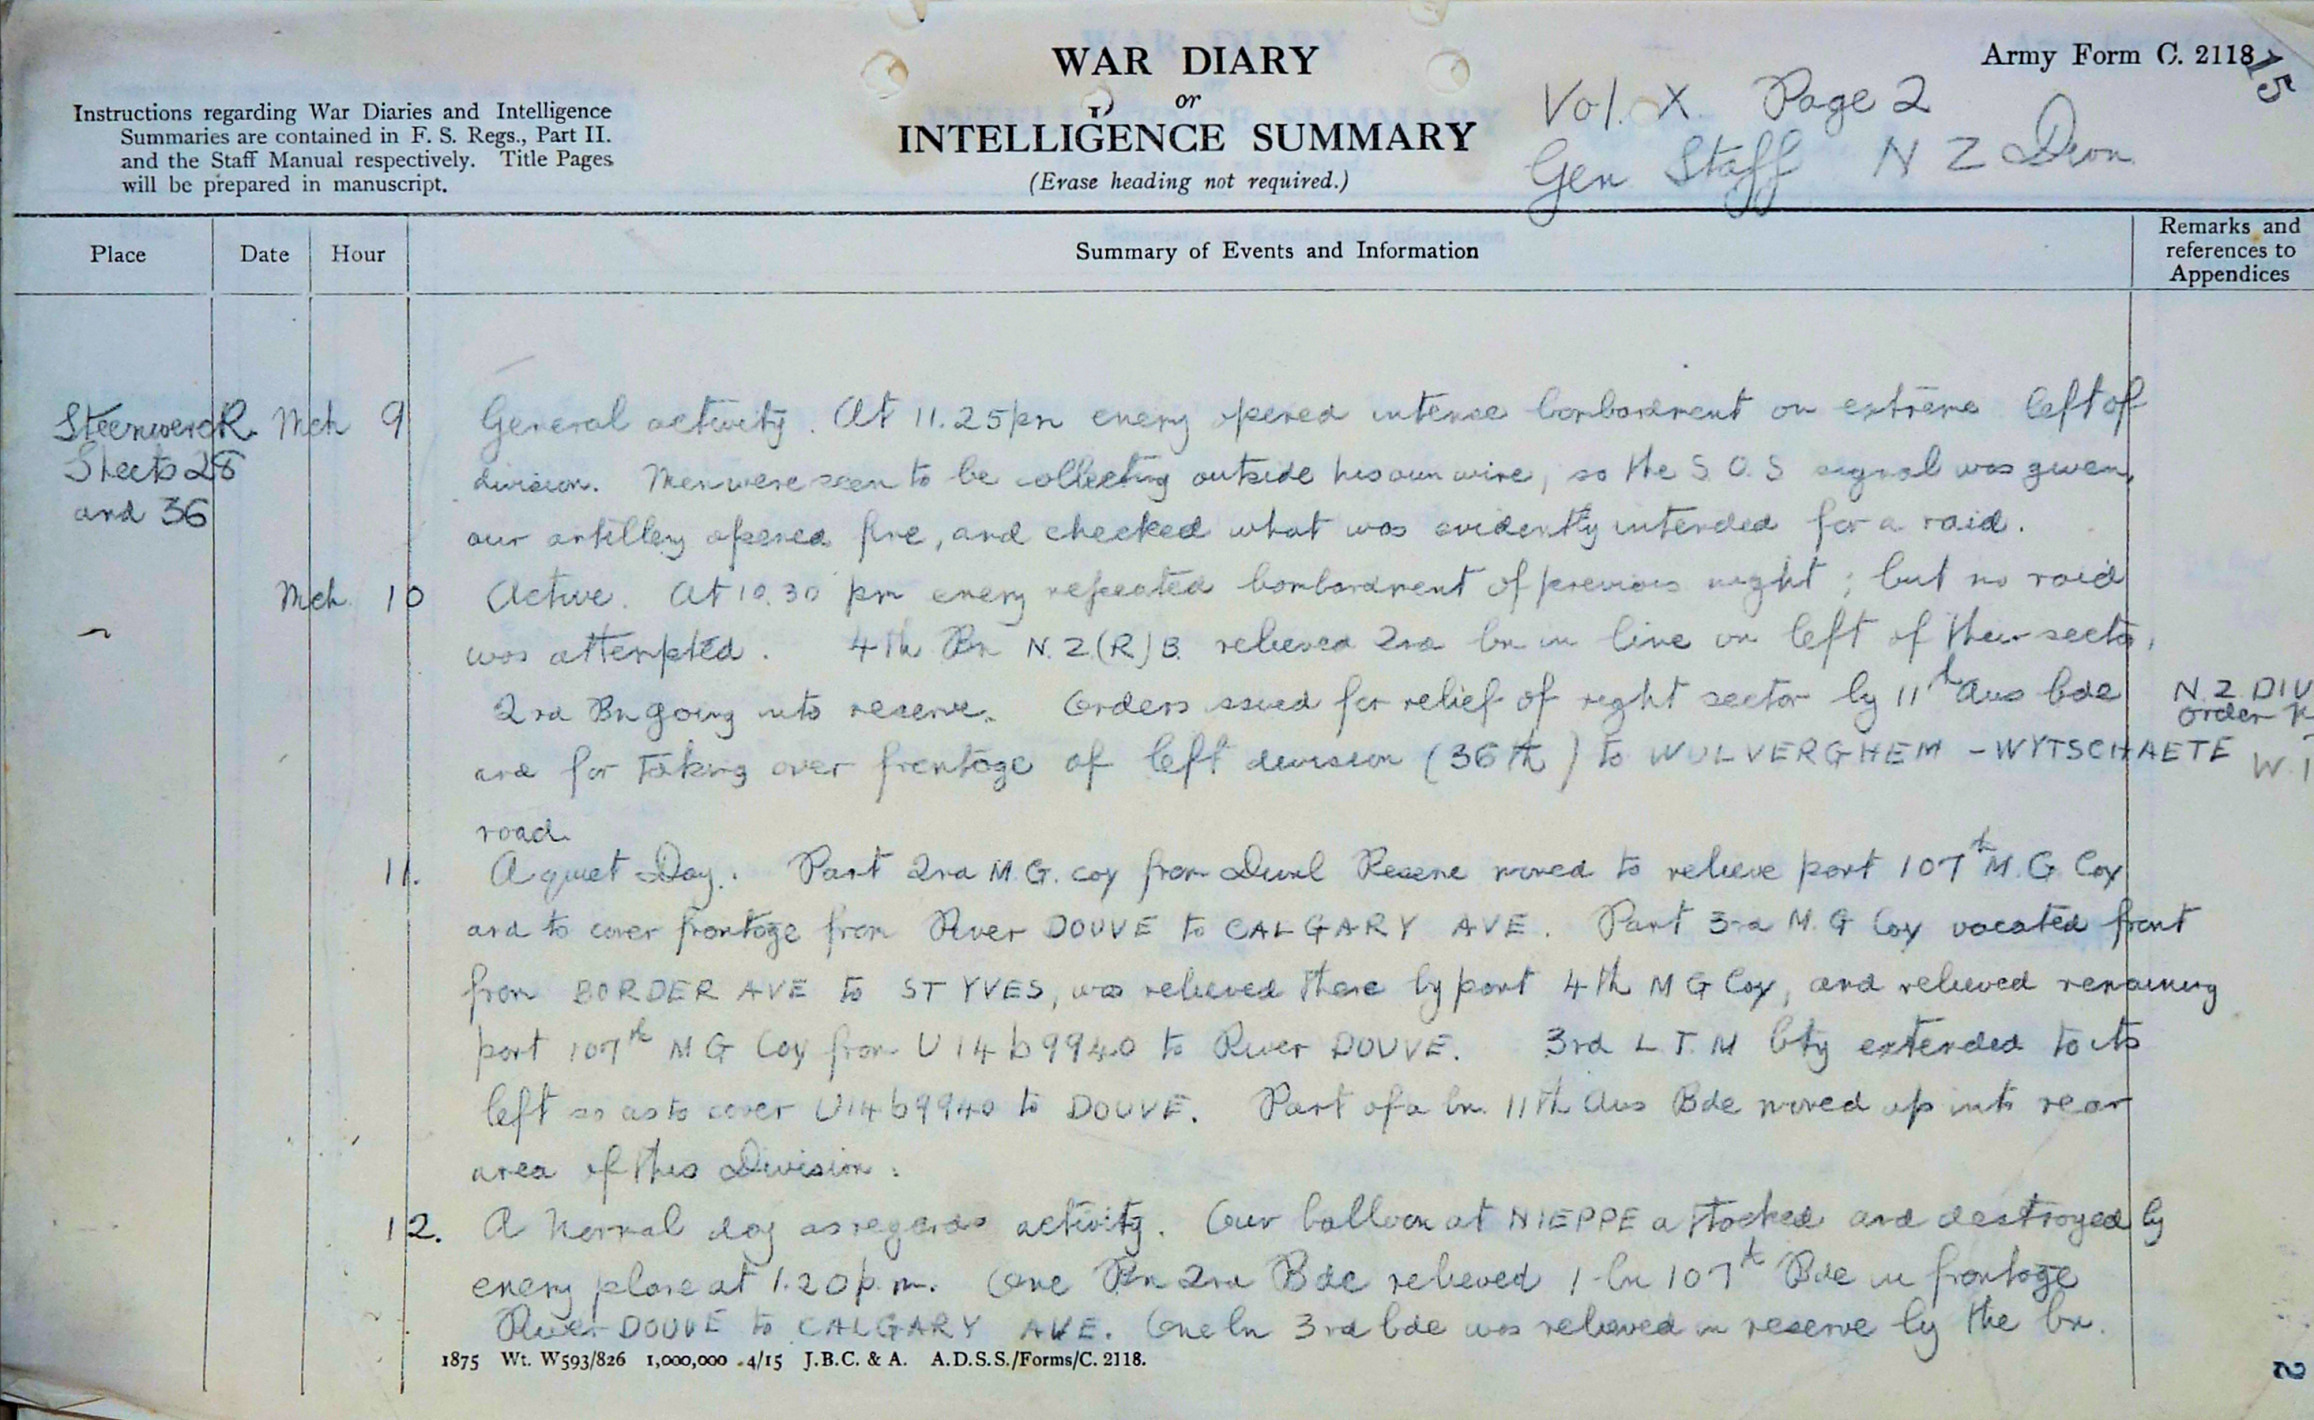 WAR DIARY
or
INTELLIGENCE SUMMARY
(Erase heading not required.)
Army Form C. 2118
15
Vol. X. Page 2
Gen Staff N Z Divn
Instructions regarding War Diaries and Intelligence
Summaries are contained in F. S. Regs., Part II.
and the Staff Manual respectively. Title Pages
will be prepared in manuscript.
Place Date Hour Summary of Events and Information Remarks and
references to
Appendices
Steenwerck Mch 9 General activity. At 11.25pm enemy opened intense bombardment on extreme left of
Sheets 28 division. Men were seen to be collecting outside his own wire, so the S.O.S signal was given,
and 36 our artillery opened fire, and checked what was evidently intended for a raid.
Mch 10 Active. At 10.30 pm enemy repeated bombardment of previous night; but no raid
was attempted. 4th Bn N.Z.(R)B. relieved 2nd bn in line on left of their sector,
2nd Bn going into reserve. Orders issued for relief of right sector by 11th Aus bde N.Z. DIV
Order
and for taking over frontage of left division (36th) to WULVERGHEM - WYTSCHAETE W.
road.
11. A quiet Day. Part 2nd M.G. coy from Divnl Reserve moved to relieve part 107th M.G. Coy
and to cover frontage from River DOUVE to CALGARY AVE. Part 3rd M.G Coy vacated front
from BORDER AVE to ST YVES, was relieved there by part 4th M G Coy, and relieved remaining
part 107th M G Coy from U 14 b 9940 to River DOUVE. 3rd L T M bty extended to its
left so as to cover U14 b9940 to DOUVE. Part of a bn. 11th Aus Bde moved up into rear
area of this Division.
12. A Normal day as regards activity. Our balloon at NIEPPE attacked and destroyed by
enemy plane at 1.20 p.m. One Bn 2nd Bde relieved 1 bn 107th Bde in frontage
River DOUVE to CALGARY AVE. One bn 3rd bde was relieved in reserve by the bn.
1875 Wt. W593/826 1,000,000 4/15 J.B.C. & A. A.D.S.S./Forms/C. 2118.
2